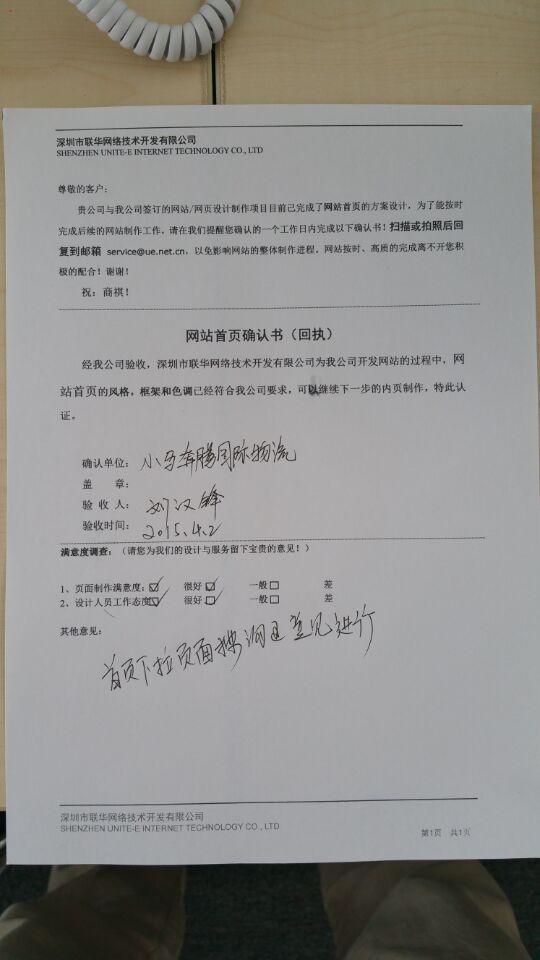 深圳市联华网络技术开发有限公司
SHENZHEN UNITE-E INTERNET TECHNOLOGY CO., LTD
尊敬的客户：
贵公司与我公司签订的网站/网页设计制作项目目前已完成了网站首页的方案设计，为了能按时
完成后续的网站制作工作，请在我们提醒您确认的一个工作日内完成以下确认书！扫描或拍照后回
复到邮箱 service@ue.net.cn，以免影响网站的整体制作进程。网站按时、高质的完成离不开您积
极的配合！谢谢！
祝：商祺！
网站首页确认书（回执）
经我公司验收，深圳市联华网络技术开发有限公司为我公司开发网站的过程中，网
站首页的风格，框架和色调已经符合我公司要求，可以继续下一步的内页制作，特此认
证。
确认单位：小马奔腾国际物流
盖 章：
验 收 人：刘汉锋
验收时间：2015.4.2
满意度调查：（请您为我们的设计与服务留下宝贵的意见！）
1、页面制作满意度：☑ 很好☑ 一般☐ 差
2、设计人员工作态度☑ 很好☑ 一般☐ 差
其他意见：
首页下拉页面 意见进行
深圳市联华网络技术开发有限公司
SHENZHEN UNITE-E INTERNET TECHNOLOGY CO., LTD
第1页 共1页